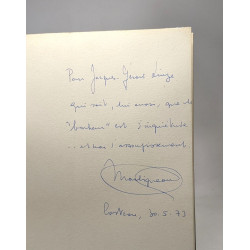 Pour Jacques-Gérard Linze
qui sait, lui aussi, que le
"bonheur" est l'inquiétude
... et non l'assouvissement
30.5.73